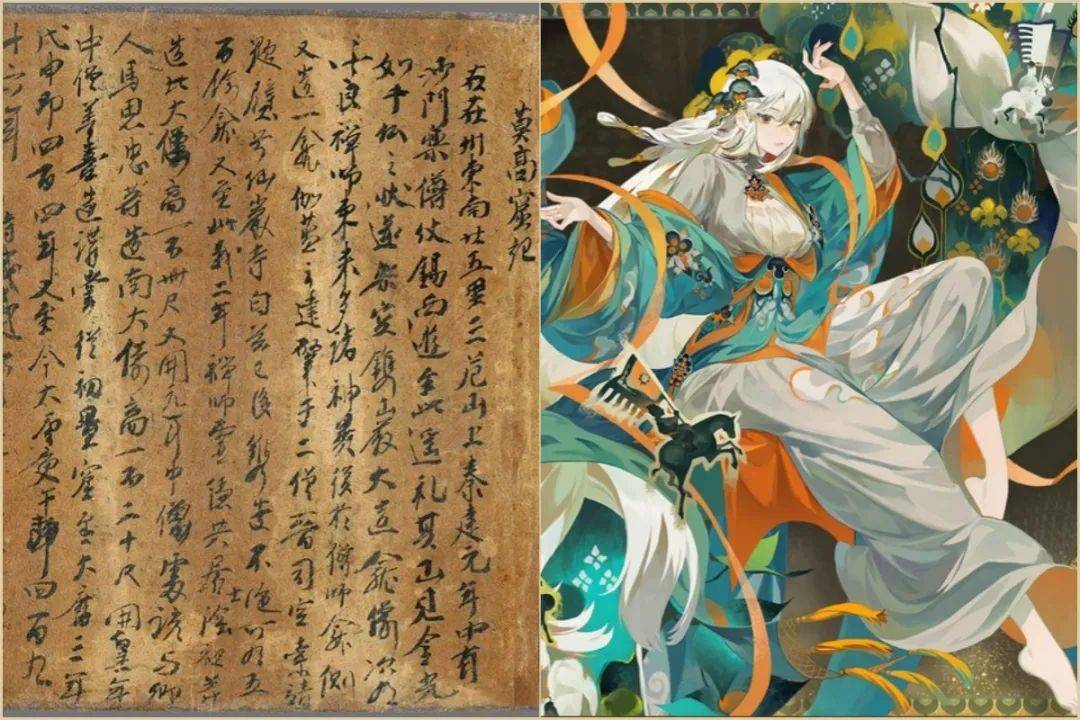 莫高窟記
右在州東南廿五里三危山上秦建元年中有
沙門樂僔仗錫西遊至此遙礼其山見金光
如千仏之狀遂架空鐫巖大造龕像次有
法良禪師東來多諸神異復於僔師龕側
又造一龕伽藍之建肇于二僧晉司空索靖
題壁号仙巖寺自茲已後鐫造不絕可有五
百余龕又至延載二年禪師靈隱共居士陰祖等
造北大像高一百卌尺又開元年中僧處諺与鄉
人馬思忠等造南大像高一百二十尺開皇年
中僧善喜造講堂從初置窟至大曆三年
戊申即四百四年又至今大唐庚午即四百九
十六年